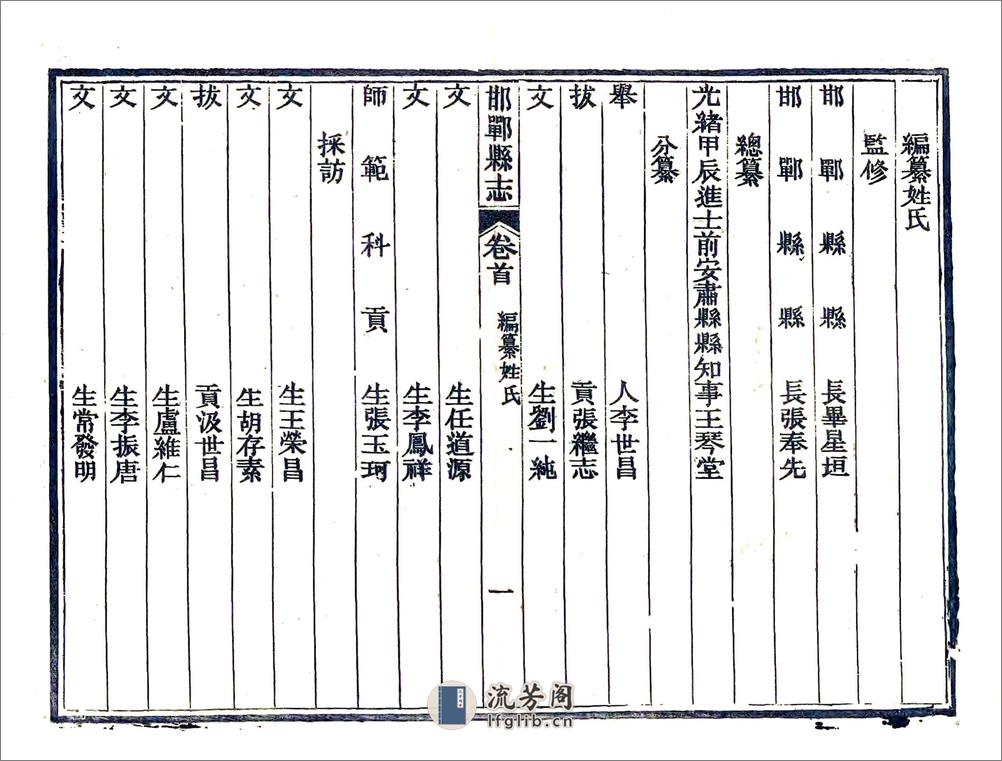 編纂姓氏
監修
邯鄲縣縣長畢星垣
邯鄲縣縣長張奉先
總纂
光緒甲辰進士前安肅縣縣知事王琴堂
分纂
舉人李世昌
拔貢張繼志
文生劉一純
邯鄲縣志 卷首 編纂姓氏 一
文生任道源
文生李鳳祥
師範科貢生張玉珂
採訪
文生王榮昌
文生胡存素
拔貢汲世昌
文生盧維仁
文生李振唐
文生常發明
流芳阁
lfglib.cn